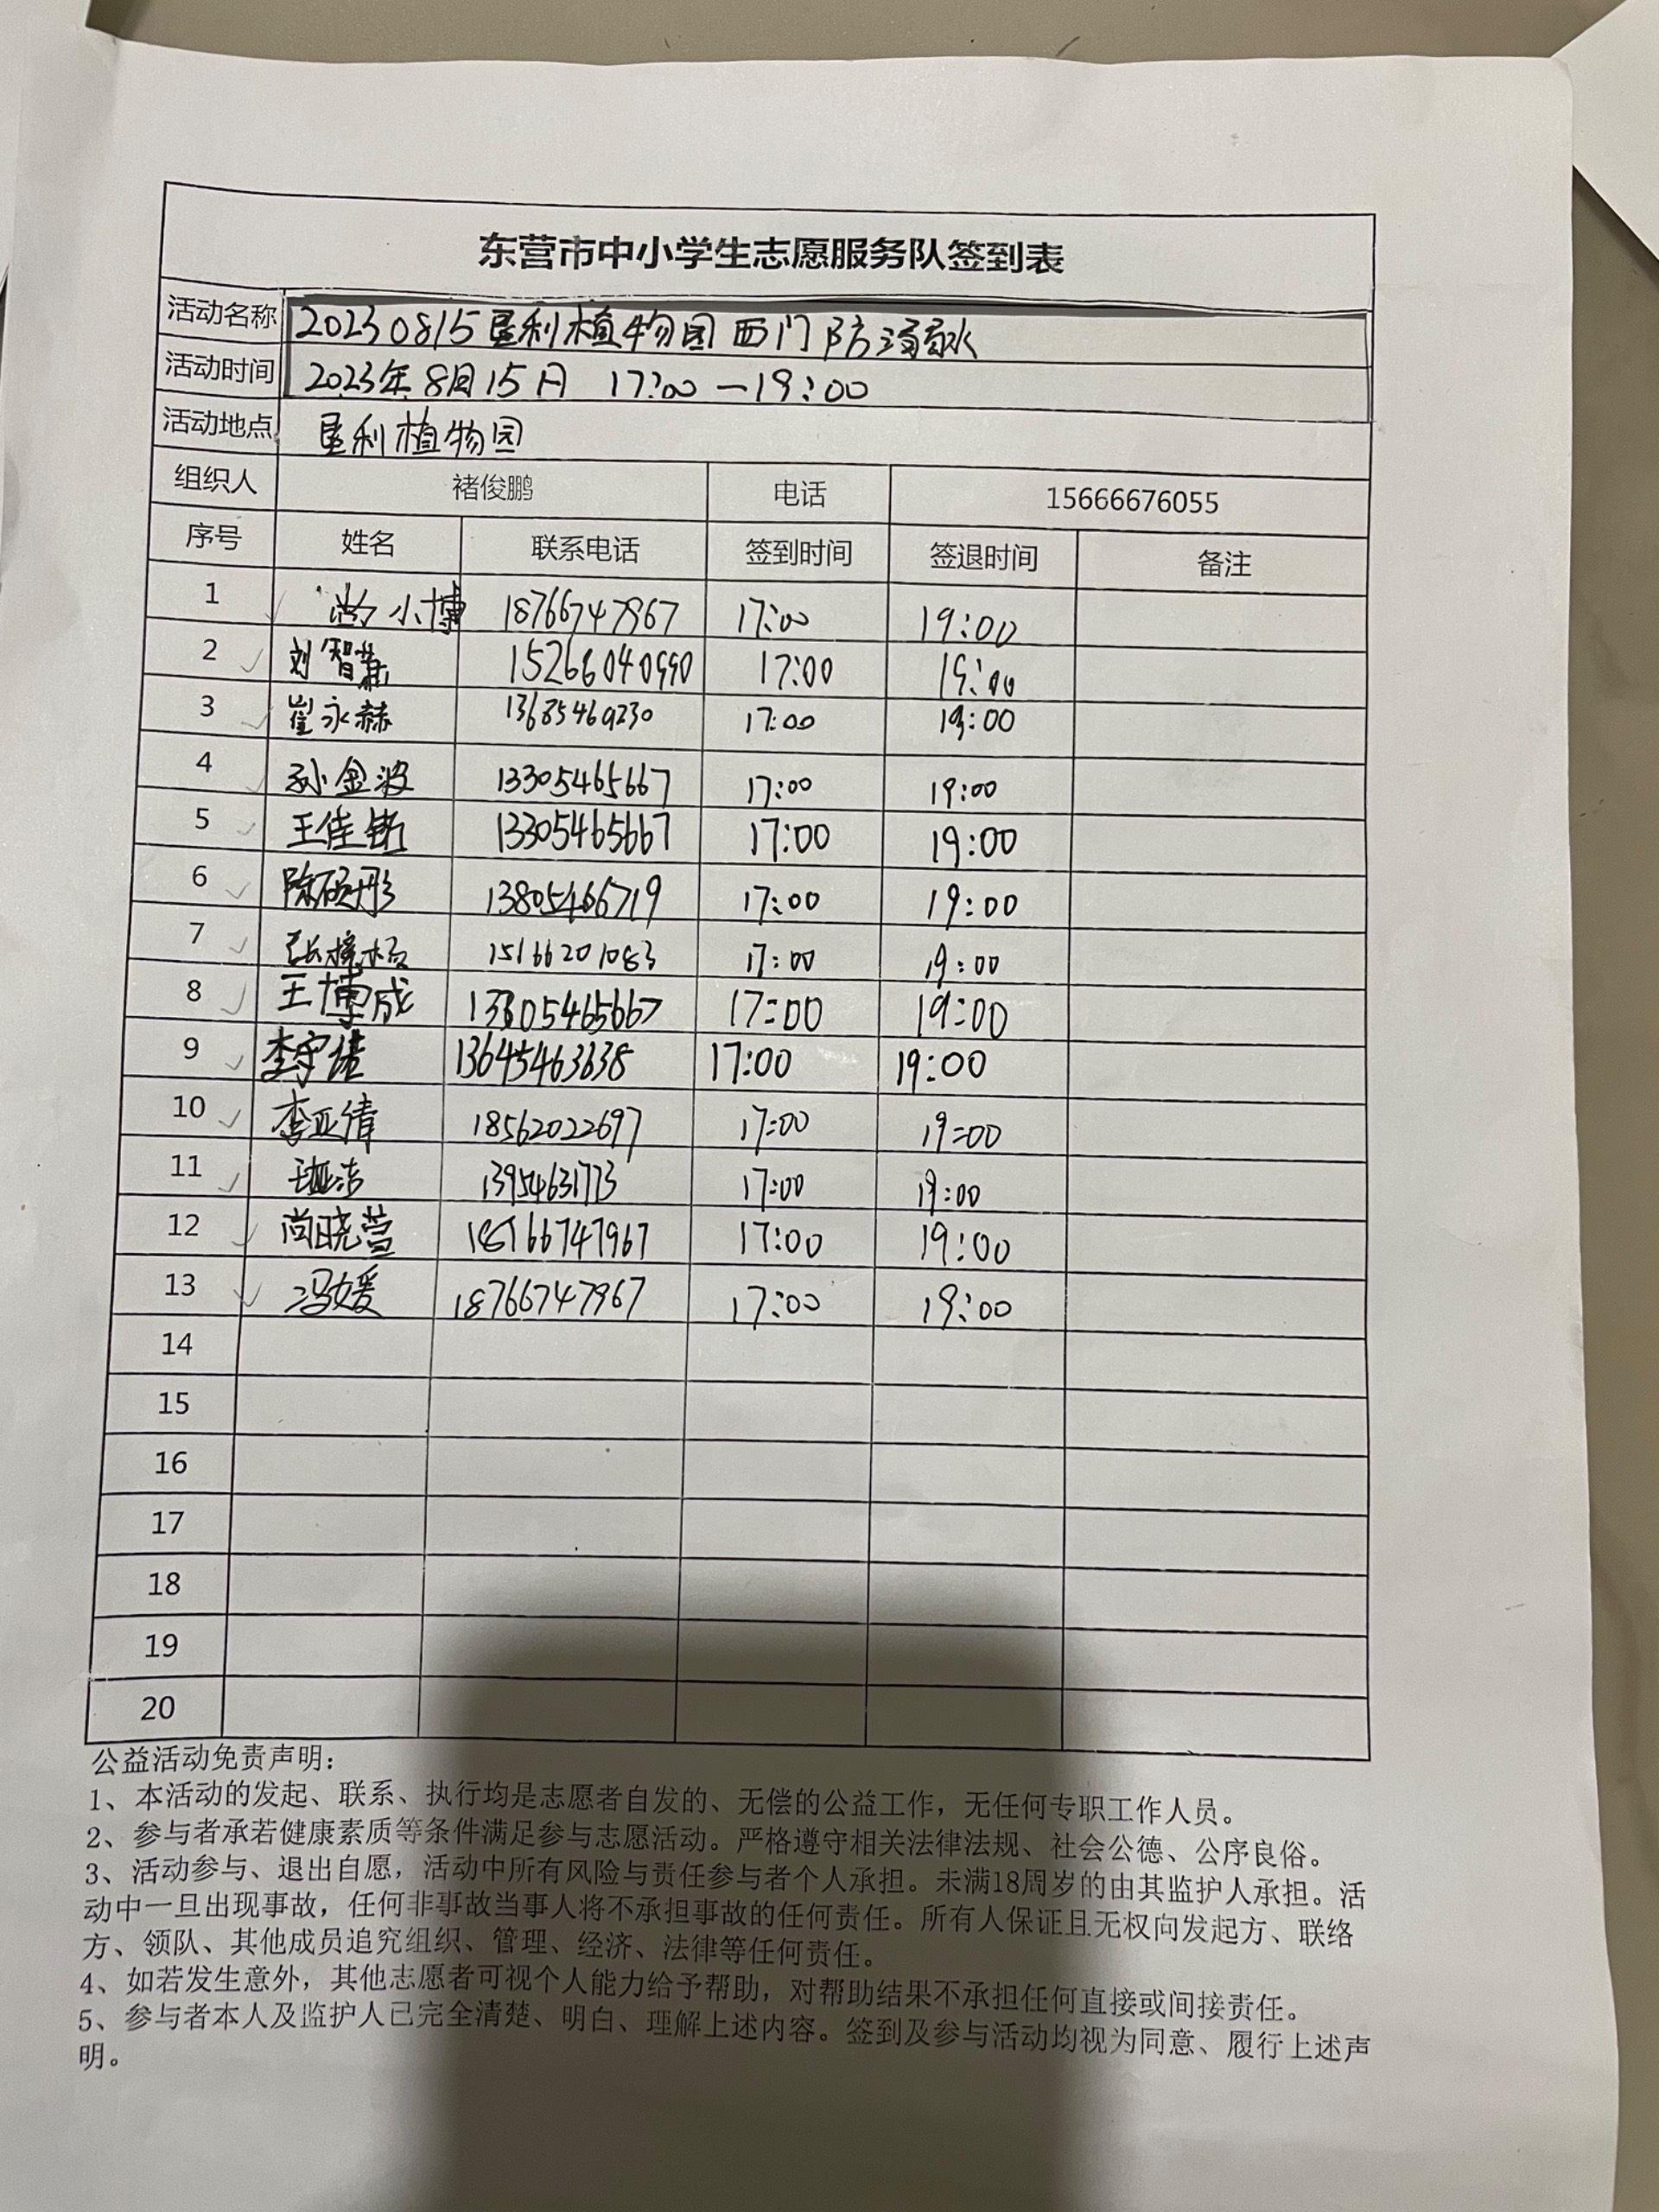 东营市中小学生志愿服务队签到表
活动名称 20230815垦利植物园西门防溺水
活动时间 2023年8月15日 17:00—19:00
活动地点 垦利植物园
组织人 褚俊鹏 电话 15666676055
序号 姓名 联系电话 签到时间 签退时间 备注
1 尚小博 18766747967 17:00 19:00
2 刘智 17:00 19:00
3 崔永赫 13685469230 17:00 19:00
4 孙金波 13305465667 17:00 19:00
5 王佳铭 13305465667 17:00 19:00
6 陈硕彤 13805466719 17:00 19:00
7 张 15166201083 17:00 19:00
8 王博成 13305465667 17:00 19:00
9 李宇 13645463638 17:00 19:00
10 李亚倩 18562022697 17:00 19:00
11 13954631773 17:00 19:00
12 尚晓萱 18766747967 17:00 19:00
13 冯媛 18766747967 17:00 19:00
14
15
16
17
18
19
20
公益活动免责声明：
1、本活动的发起、联系、执行均是志愿者自发的、无偿的公益工作，无任何专职工作人员。
2、参与者承若健康素质等条件满足参与志愿活动。严格遵守相关法律法规、社会公德、公序良俗。
3、活动参与、退出自愿，活动中所有风险与责任参与者个人承担。未满18周岁的由其监护人承担。活
动中一旦出现事故，任何非事故当事人将不承担事故的任何责任。所有人保证且无权向发起方、联络
方、领队、其他成员追究组织、管理、经济、法律等任何责任。
4、如若发生意外，其他志愿者可视个人能力给予帮助，对帮助结果不承担任何直接或间接责任。
5、参与者本人及监护人已完全清楚、明白、理解上述内容。签到及参与活动均视为同意、履行上述声
明。